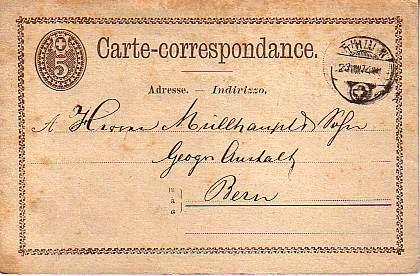 5
Carte-correspondance.
Adresse. — Indirizzo.
A Herren Müllhaupt & Sohn
Geogr Anstalt
à
a
Bern